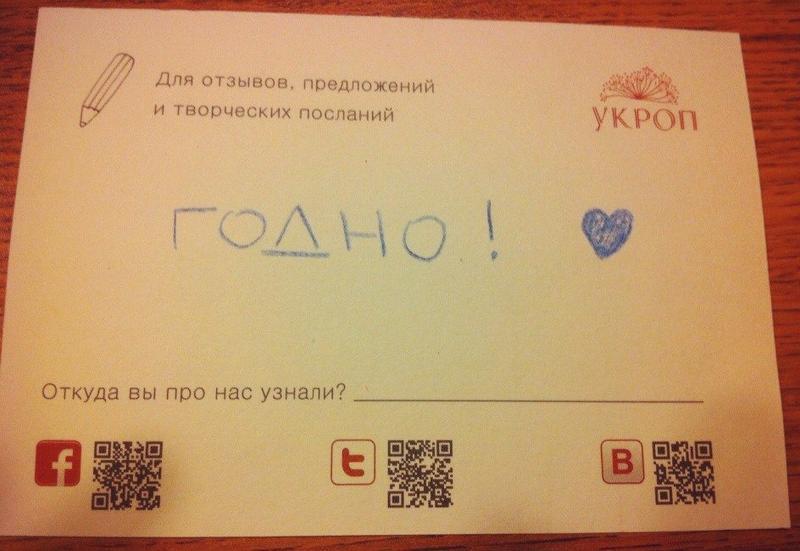 Для отзывов, предложений
и творческих посланий
УКРОП
ГОДНО!
Откуда вы про нас узнали?
f
t
B